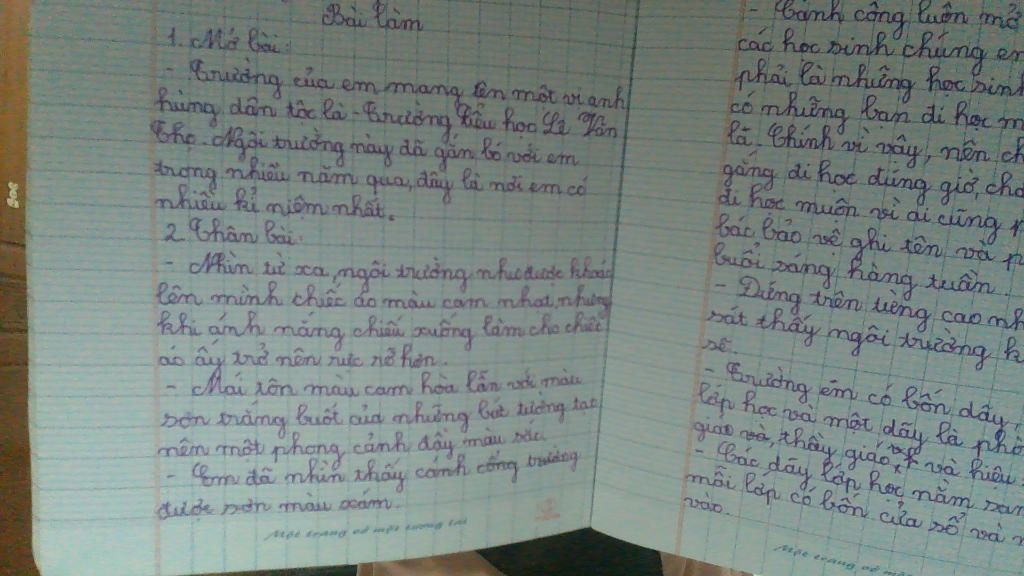 Bài làm
1. Mở bài:
- Trường của em mang tên một vị anh
hùng dân tộc là - Trường Tiểu học Lê Văn
Thọ. Ngôi trường này đã gắn bó với em
trong nhiều năm qua, đây là nơi em có
nhiều kỉ niệm nhất.
2. Thân bài:
- Nhìn từ xa, ngôi trường như được khoác
lên mình chiếc áo màu cam nhạt, nhưng
khi ánh nắng chiếu xuống làm cho chiếc
áo ấy trở nên rực rỡ hơn.
- Mái tôn màu cam hòa lẫn với màu
sơn trắng buốt của những bức tường tạo
nên một phong cảnh đầy màu sắc.
- Em đã nhìn thấy cánh cổng trường
được sơn màu xám.
Một trang vở một tương lai
- Cánh cổng luôn mở
các học sinh chúng em
phải là những học sinh
có những bạn đi học m
là. Chính vì vậy, nên ch
gắng đi học đúng giờ, cho
đi học muộn vì đi cũng p
bác bảo vệ ghi tên và p
buổi sáng hàng tuần.
- Đứng trên từng cao nh
sát thấy ngôi trường h
rõ.
- Trường em có bốn dãy,
lớp học và một dãy là phò
giáo và, thầy giáo, và hiệu
- Các dãy lớp học nằm san
mỗi lớp có bốn cửa sổ và
vào.
Một trang vở một